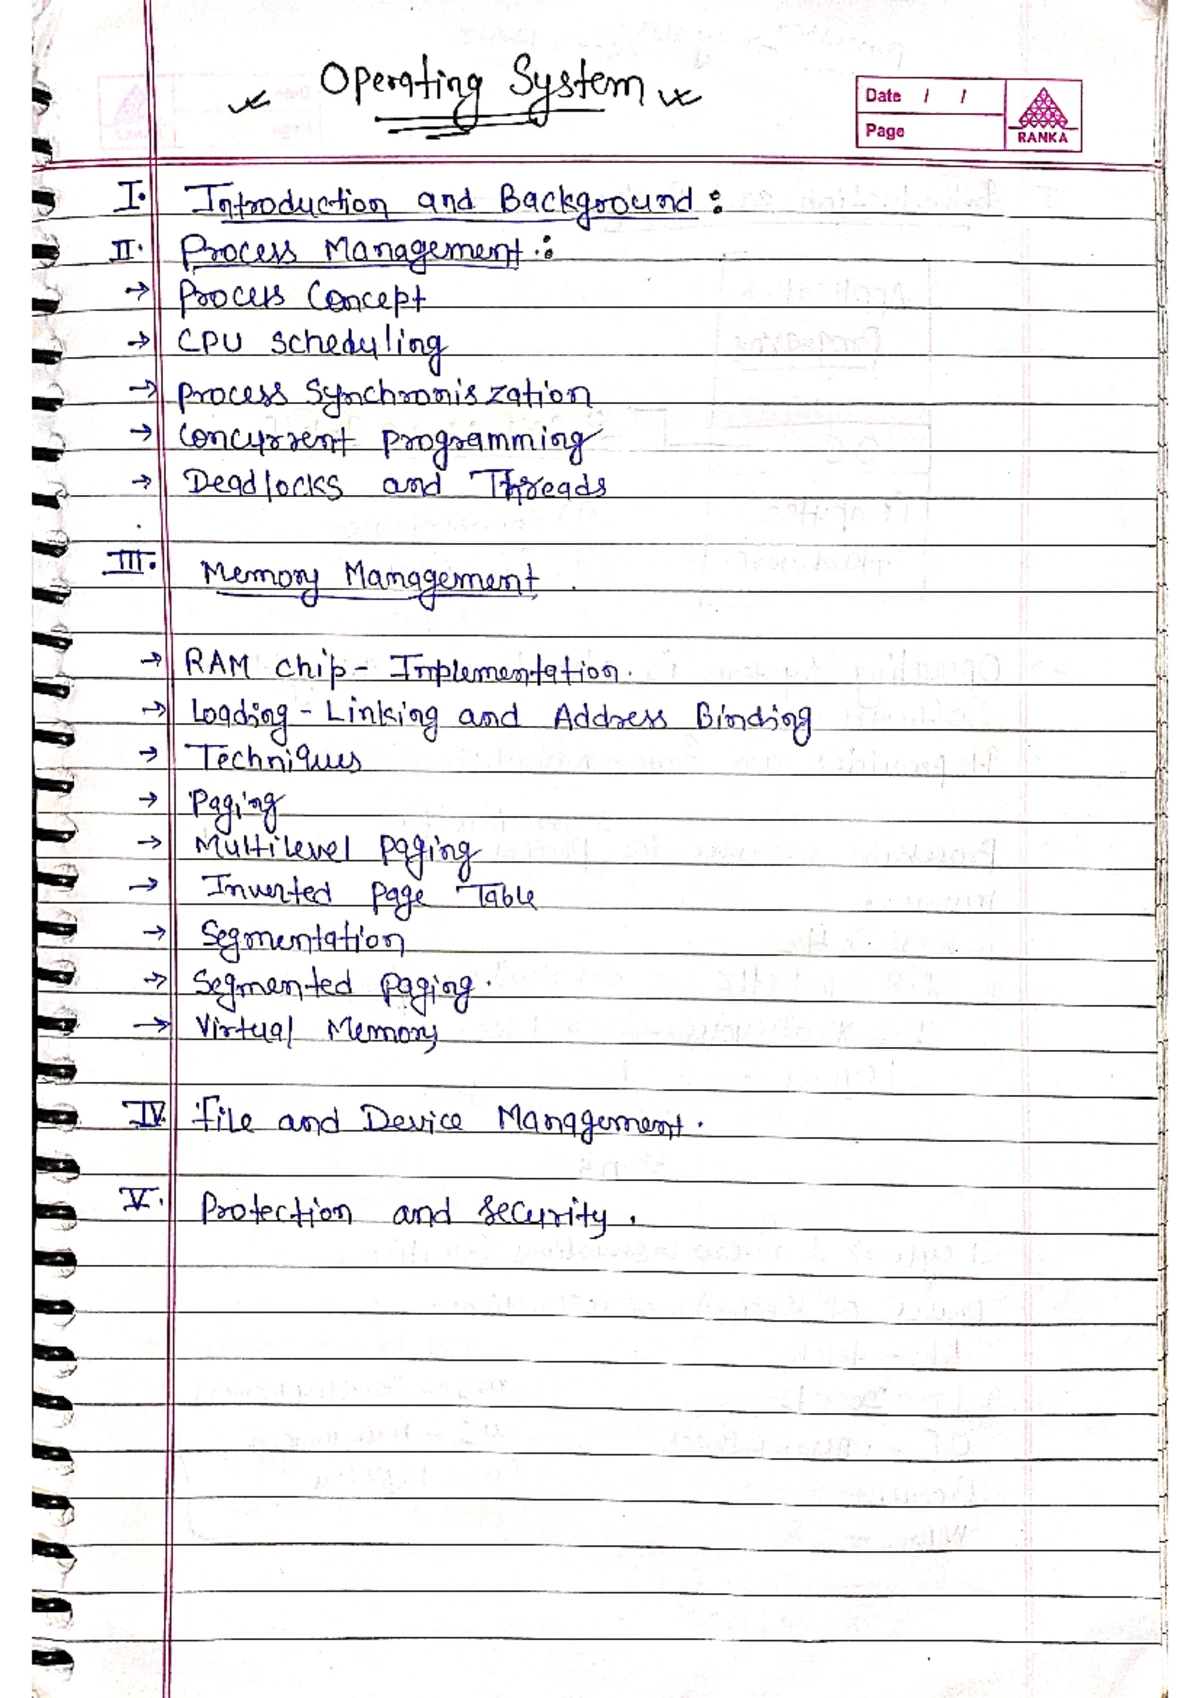 Operating System
Date / /
Page
RANKA
I. Introduction and Background :
II. Process Management :
→ Process Concept
→ CPU Scheduling
→ Process Synchronis zation
→ Concurrent programming
→ Deadlocks and Threads
III. Memory Management .
→ RAM chip - Implementation.
→ Loading - Linking and Address Binding
→ Techniques
→ Paging
→ Multilevel paging
→ Inverted page Table
→ Segmentation
→ Segmented paging .
→ Virtual Memory
IV. File and Device Management .
V. Protection and Security .